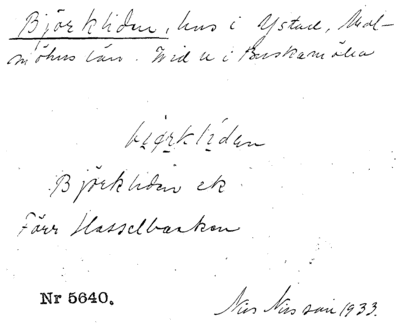 Björkliden, hus i Ystad, Mal-
möhus län. Wid u i Buskamölla
bjørkliden
Björkliden ek
Förr Hasselbacken
Nr 5640.
Nils Nilsson 1933.